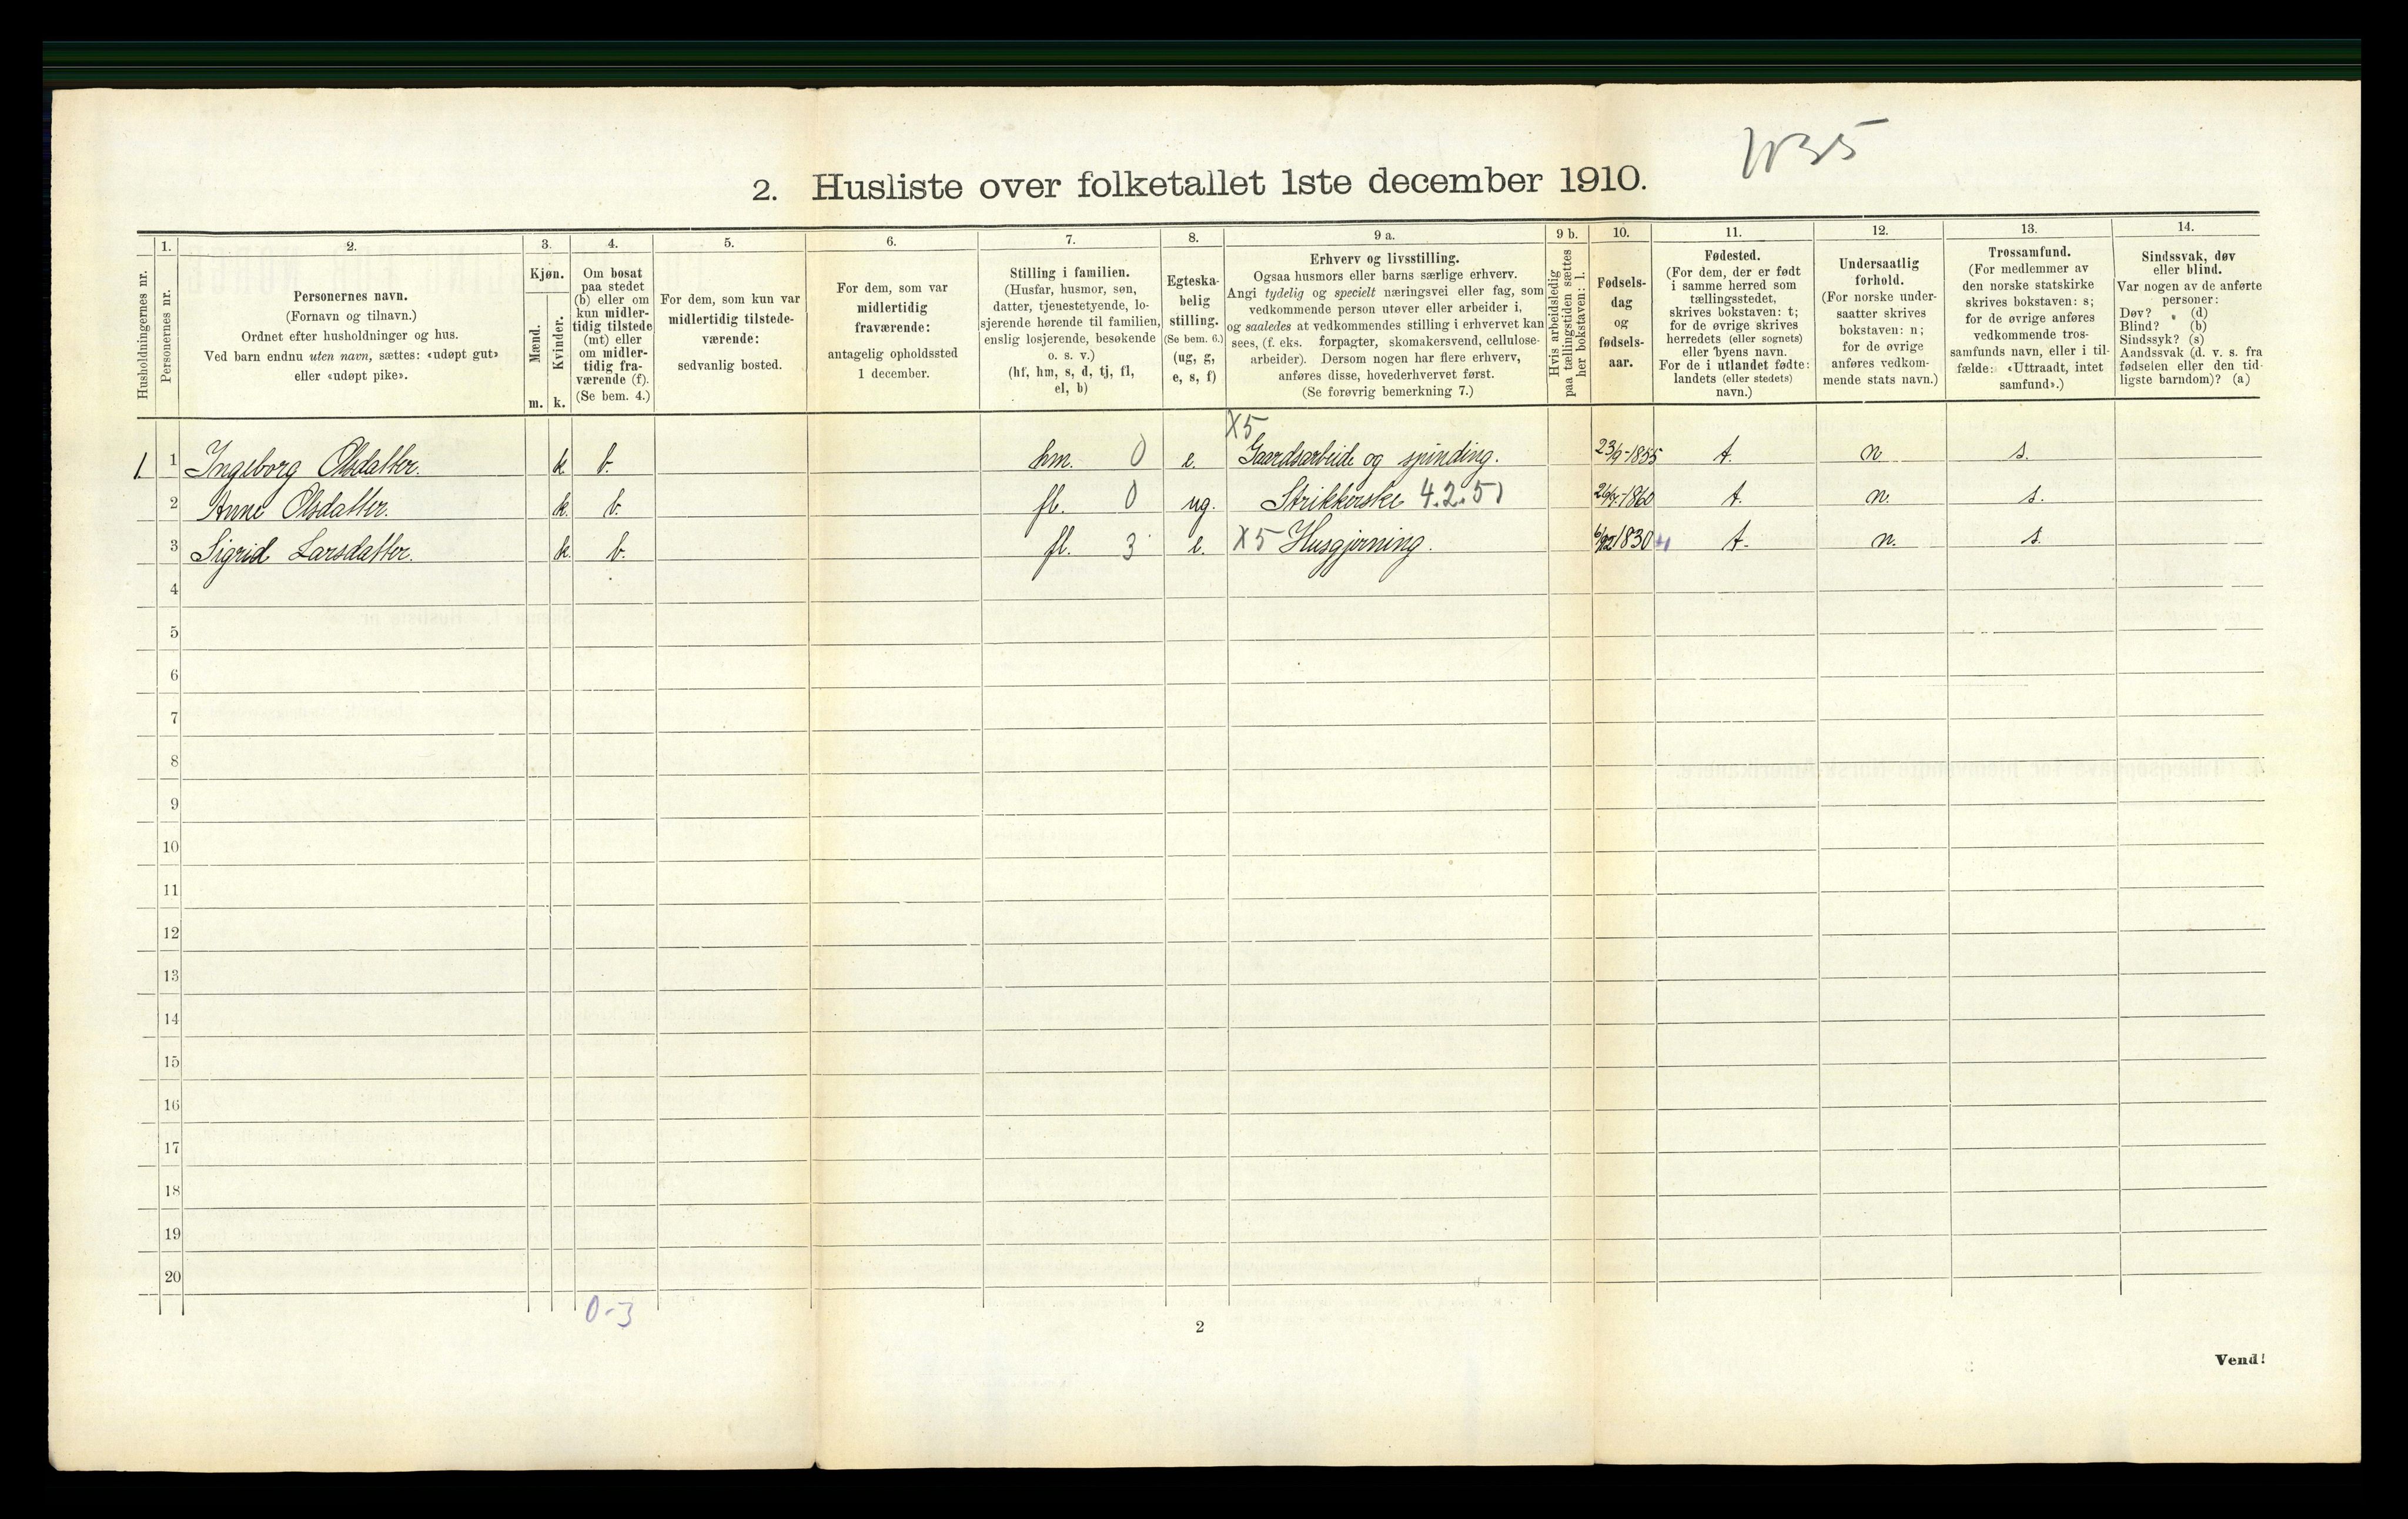 2. Husliste over folketallet 1ste december 1910.
Husholdningernes nr.
1.
Personernes nr.
2.
Personernes navn.
(Fornavn og tilnavn.)
Ordnet efter husholdninger og hus.
Ved barn endnu uten navn, sættes: «udøpt gut»
eller «udøpt pike».
3.
Kjøn.
Mænd.
m.
Kvinder.
k.
4.
Om bosat
paa stedet
(b) eller om
kun midler-
tidig tilstede
(mt) eller
om midler-
tidig fra-
værende (f).
(Se bem. 4.)
5.
For dem, som kun var
midlertidig tilstede-
værende:
sedvanlig bosted.
6.
For dem, som var
midlertidig
fraværende:
antagelig opholdssted
1 december.
7.
Stilling i familien.
(Husfar, husmor, søn,
datter, tjenestetyende, lo-
sjerende hørende til familien,
enslig losjerende, besøkende
o. s. v.)
(hf, hm, s, d, tj, fl,
el, b)
8.
Egteska-
belig
stilling.
(Se bem. 6.)
(ug, g,
e, s, f)
9 a.
Erhverv og livsstilling.
Ogsaa husmors eller barns særlige erhverv.
Angi tydelig og specielt næringsvei eller fag, som
vedkommende person utøver eller arbeider i,
og saaledes at vedkommendes stilling i erhvervet kan
sees, (f. eks. forpagter, skomakersvend, cellulose-
arbeider). Dersom nogen har flere erhverv,
anføres disse, hovederhvervet først.
(Se forøvrig bemerkning 7.)
9 b.
Hvis arbeidsledig
paa tællingstiden sættes
her bokstaven: l.
10.
Fødsels-
dag
og
fødsels-
aar.
11.
Fødested.
(For dem, der er født
i samme herred som
tællingsstedet,
skrives bokstaven: t;
for de øvrige skrives
herredets (eller sognets)
eller byens navn.
For de i utlandet fødte:
landets (eller stedets)
navn.)
12.
Undersaatlig
forhold.
(For norske under-
saatter skrives
bokstaven: n;
for de øvrige
anføres vedkom-
mende stats navn.)
13.
Trossamfund.
(For medlemmer av
den norske statskirke
skrives bokstaven: s;
for de øvrige anføres
vedkommende tros-
samfunds navn, eller i til-
fælde: «Uttraadt, intet
samfund».)
14.
Sindssvak, døv
eller blind.
Var nogen av de anførte
personer:
Døv? " (d)
Blind? (b)
Sindssyk? (s)
Aandssvak (d. v. s. fra
fødselen eller den tid-
ligste barndom)? (a)
X5
1. 1 Ingeborg Olsdatter. k. b. hm. 0 e. Gaardsarbeide og spinding. 23/9-1855 t. n. s.
2 Anne Olsdatter. k. b. fl. 0 ug. Strikkerske 4.2.51 -1860 t. n. s.
3 Sigrid Larsdatter. k. b. fl. 3 e. X5 Husgjerning. 6/12 1830 t. n. s.
4
5
6
7
8
9
10
11
12
13
14
15
16
17
18
19
20
0-3
2
Vend!